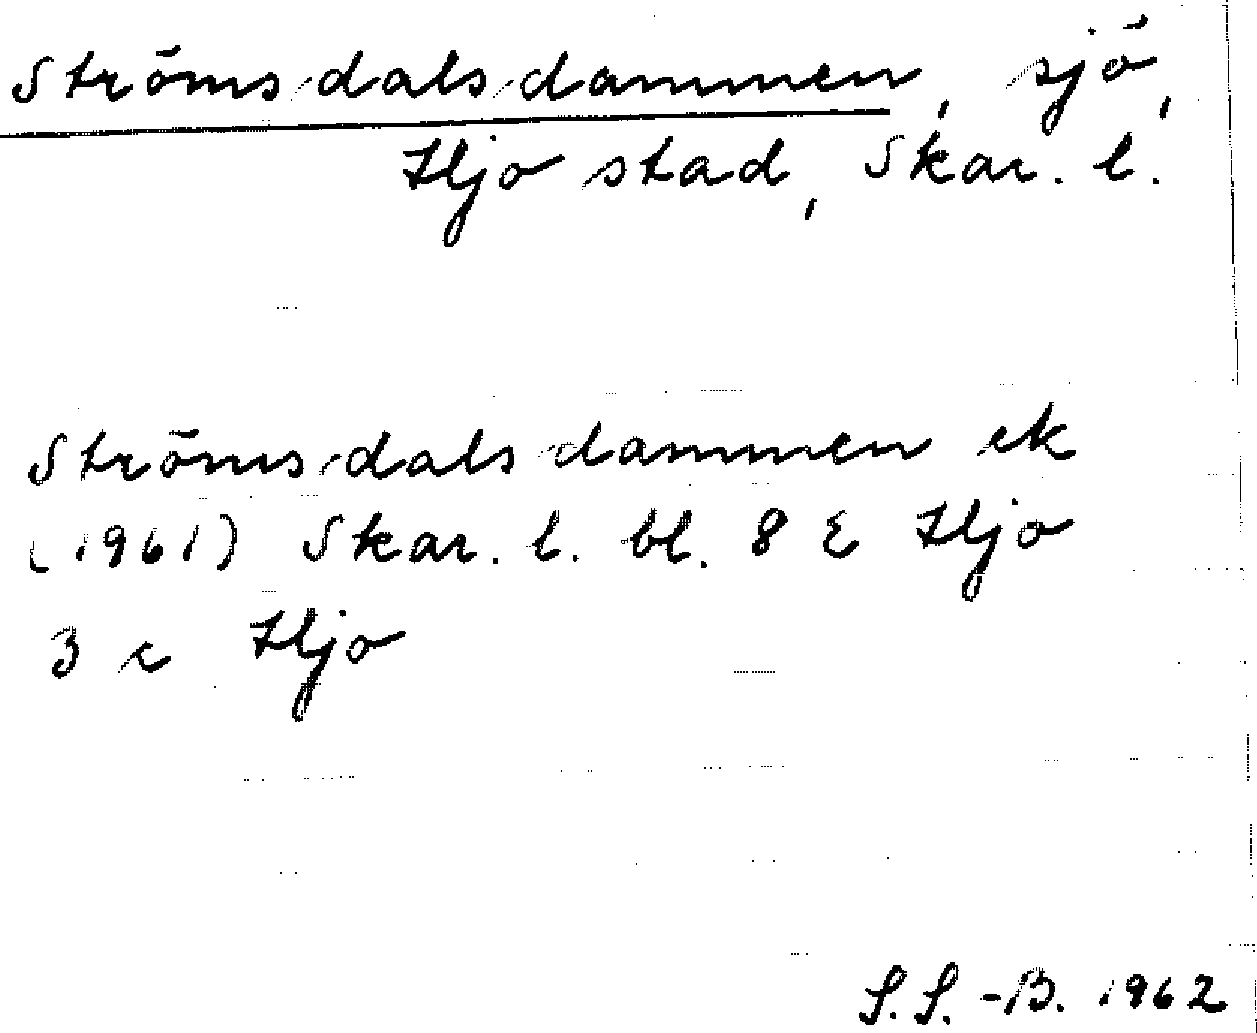 Strömsdalsdammen, sjö,
Hjo stad, Skar. l.
Strömsdalsdammen ek
(1961) Skar. l. bl. 8 E Hjo
3 c Hjo
S.S.-B. 1962